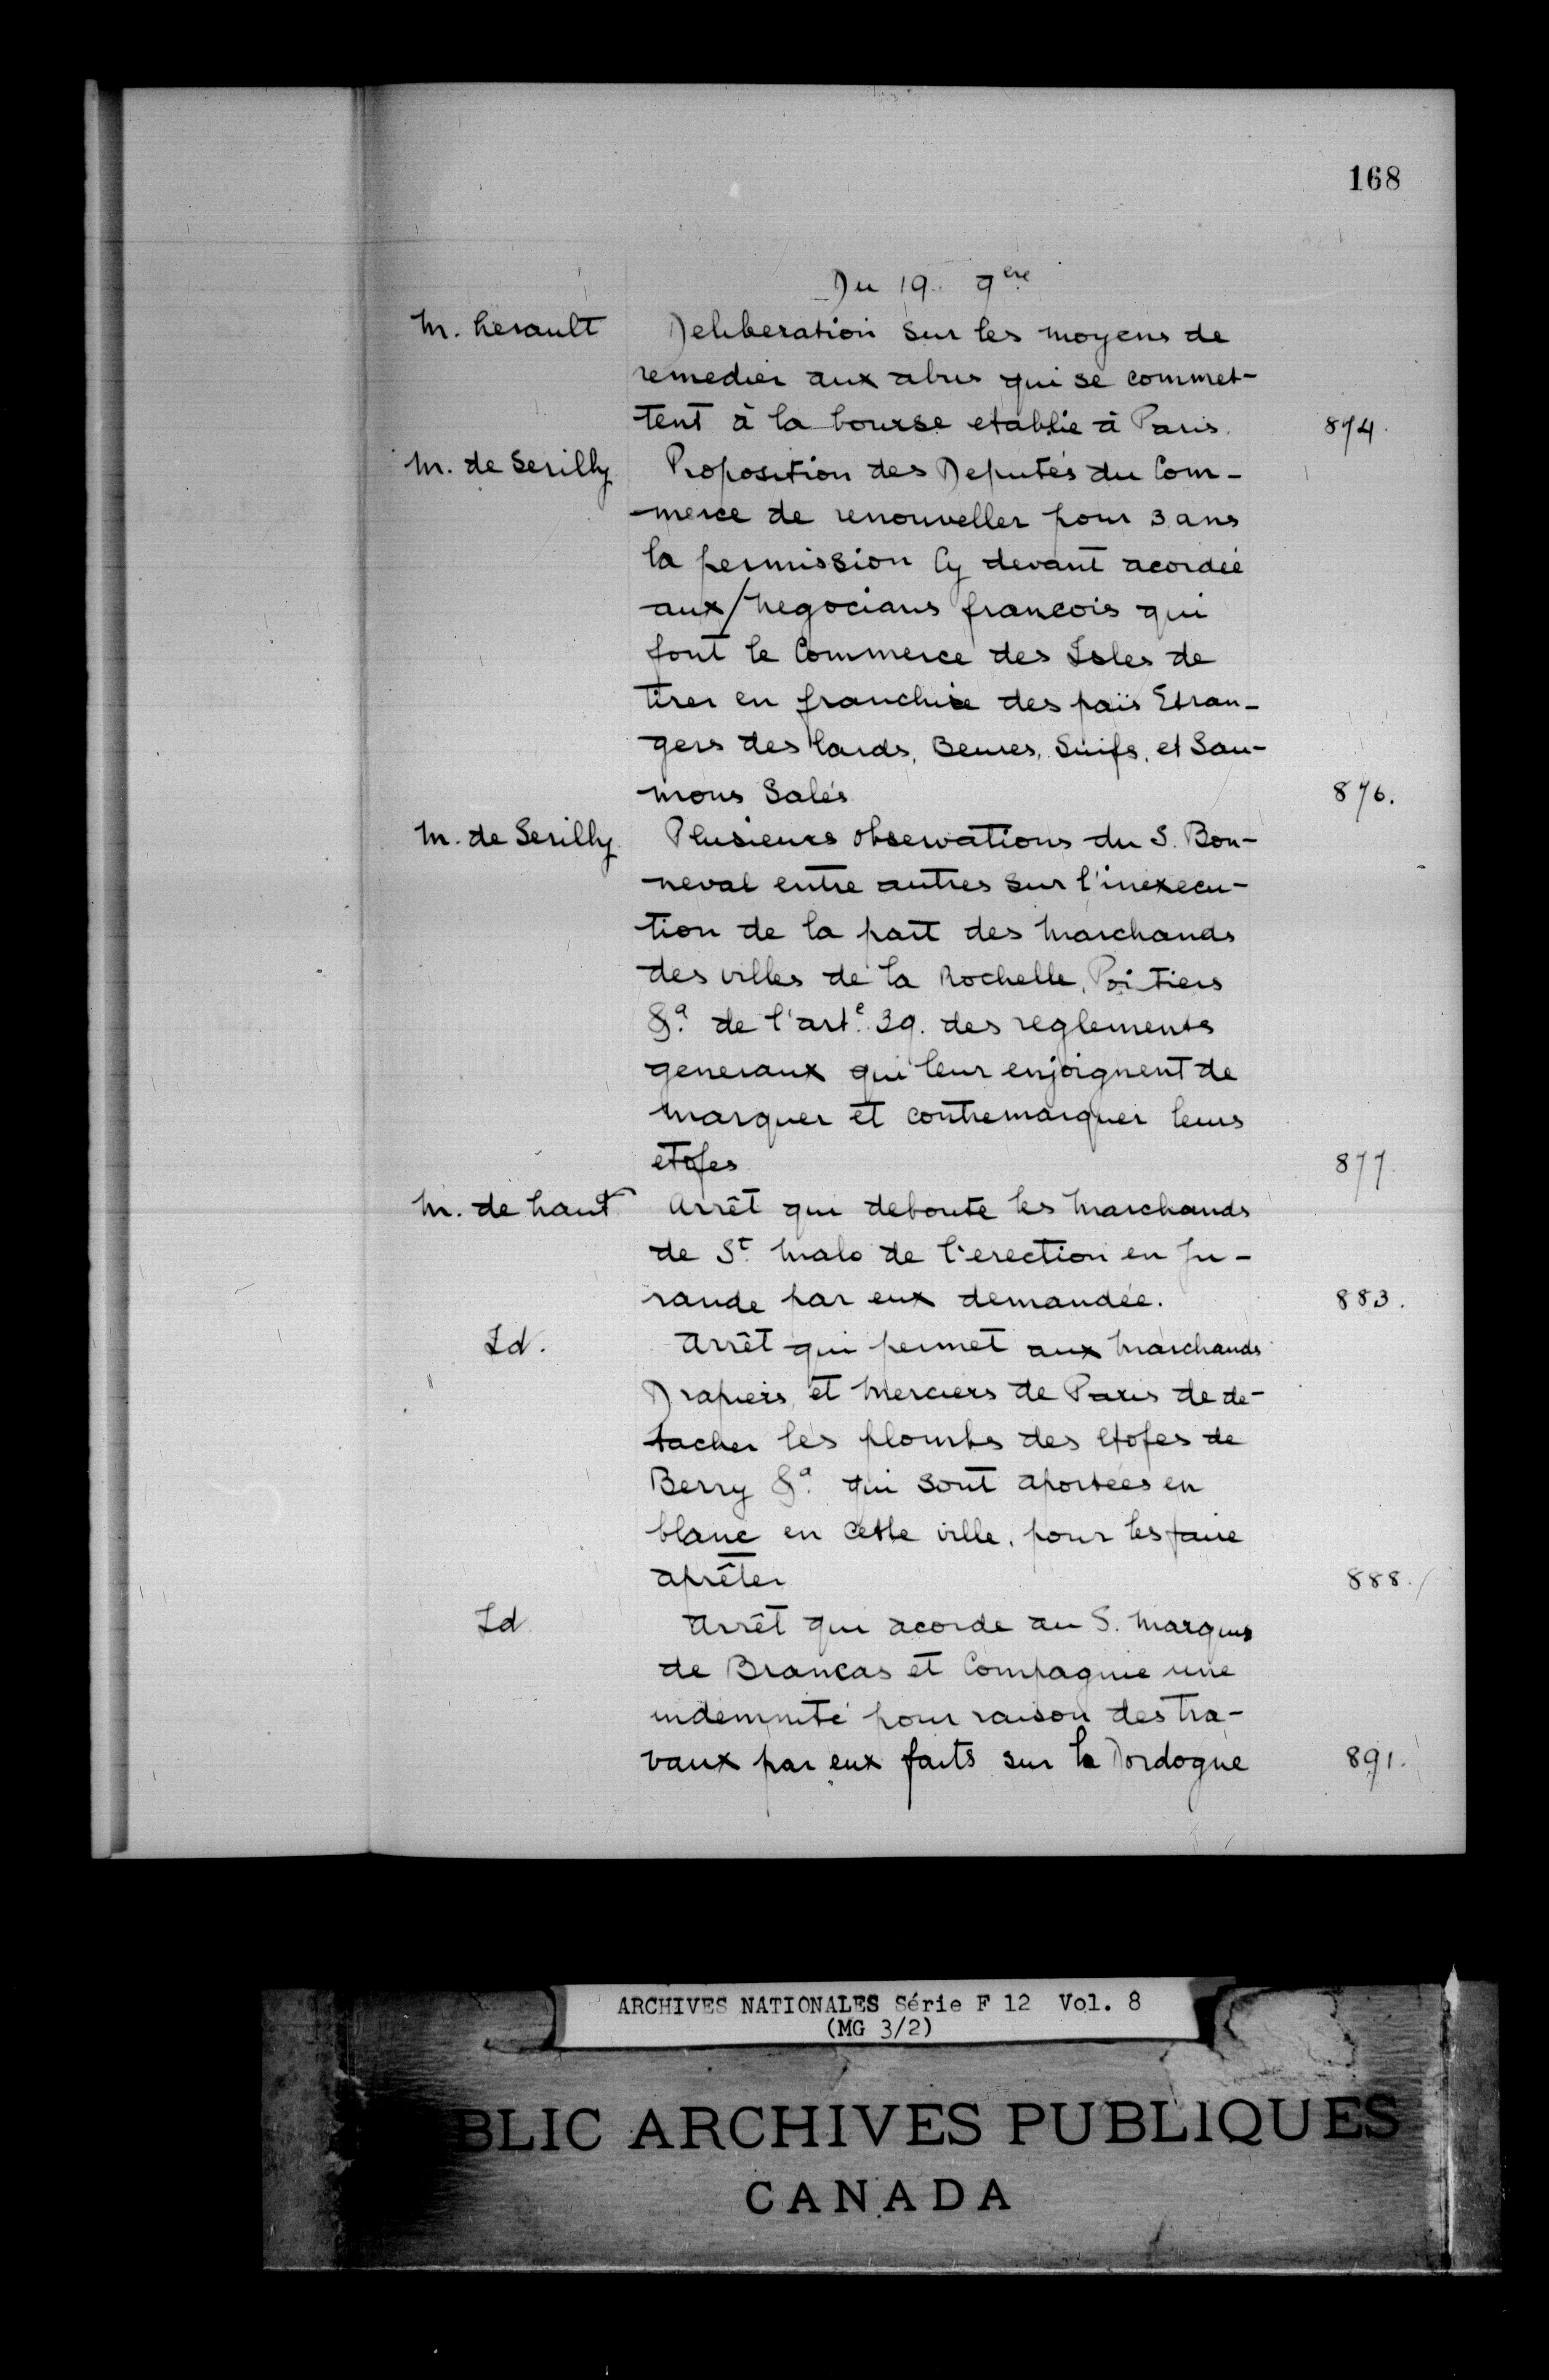 168
Du 19. 9ere
M. herault Deliberation sur les moyens de
remedier aux abus qui se commet-
tent à la bourse etablie à Paris. 874.
M. de Serilly Proposition des Deputés du Com-
-merce de renouveller pour 3 ans
la permission Cy devant acordée
aux/negocians francois qui
font le Commerce des Isles de
tirer en franchise des païs Etran-
gers des lards, Beures, Suifs, et Sau-
mons Salés 876.
M. de Serilly Plusieurs observations du S. Bon-
neval entre autres sur l'inexecu-
tion de la part des Marchands
des villes de la Rochelle, Poitiers
&a. de l'arte. 39. des reglements
generaux qui leur enjoignent de
marquer et contremarquer leurs
etofes 877
M. de haut Arrêt qui deboute les Marchands
de St. Malo de l'erection en Ju-
rande par eux demandée. 883.
Id. Arrêt qui permet aux Marchands
Drapiers, et Merciers de Paris de de-
tacher les plombs des etofes de
Berry &a. qui sont aportées en
blanc en cette ville, pour les faire
aprêter 888.
Id Arrêt qui acorde au S. Marquis
de Brancas et Compagnie une
indemnité pour raison des tra-
vaux par eux faits sur la Dordogne 891.
ARCHIVES NATIONALES Série F 12 Vol. 8
(MG 3/2)
BLIC ARCHIVES PUBLIQUES
CANADA